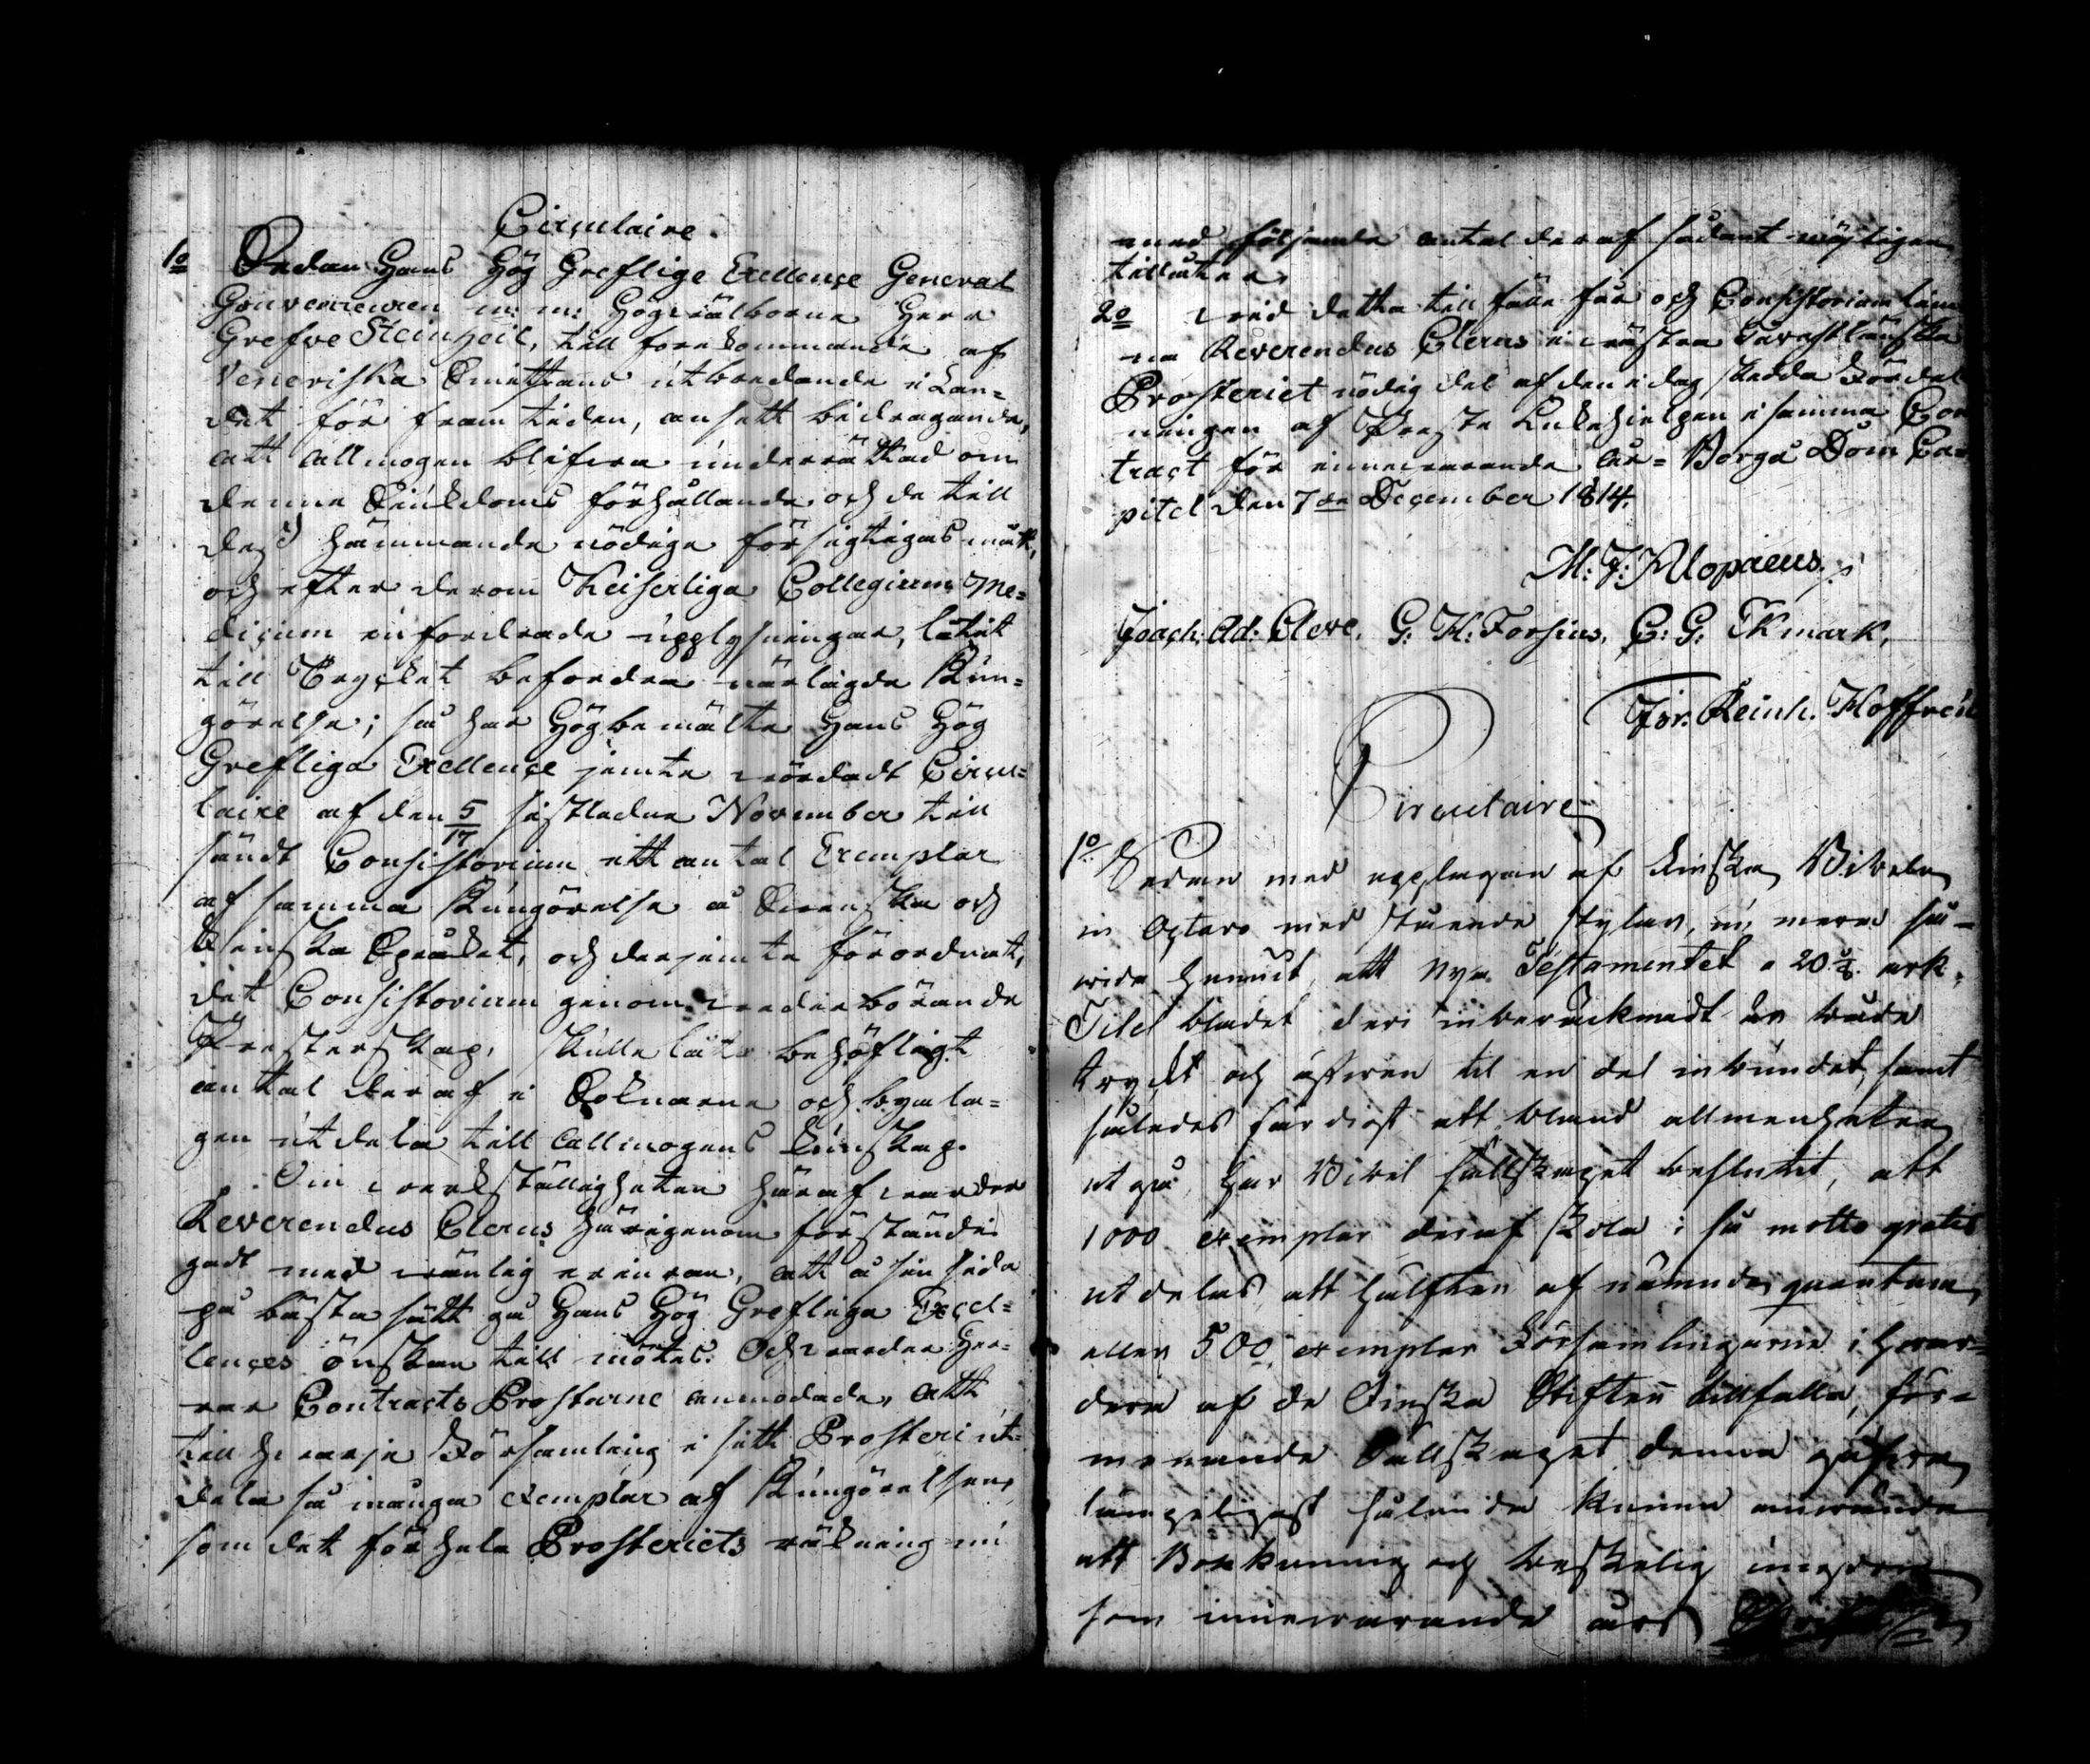 Circulaire.
1o Sedan Hans Hög Greflige Excellence General
Gouverneuren m: m: Högvälborne Herr
Grefve Steinheil, till förekommande af
Veneriska Smittans utbredande i Lan=
det för framtiden, ansett bidragande,
att allmogen blifver underrättad om
denne Sjukdoms förhållande och de till
dess hämmande nödiga försigtighets mått,
och efter derom Keiserliga Collegium Me=
dicum infordrade upplysningar, låtit
till Trycket befordra närlagde Kun=
görelse; så har Högbemälte Hans Hög
Grefliga Excellence jemte vördadt Circu=
laire af den 5/17 sistledne November till
sändt Consistorium ett antal Exemplar
af samma Kungörelse å Svenska och
Finska Språket, och derjemte förordnat,
det Consistorium genom vederbörande
Presterskap, skulle låta behöfligt
antal deraf i Soknarne och byala=
gen utdela till allmogens kunskap.
Om verkställigheten häraf varder
Reverendus Clerus härigenom förständi
gadt med vänlig erinran, att å sin sida
på bästa sätt gå Hans Hög Grefliga Excel=
lences önskan till mötes. Och varder Her=
rar Contracts Prostarne anmodade, att
till hvarje Församling i sitt Prosteri ut=
dela så många exemplar af Kungörelsen,
som det för hela Prosteriets räkning nu
med följande antal deraf sådant möjligen
tillåter.
2o Vid detta tillfälle får och Consistorium läm
na Reverendus Clerus i västra Tavastländska
Prosteriet nödig del af den i dag skedda Fördel
ningen af Preste Enkehjelpen i samma Con
tract för innevarande år= Borgå Dom Ca=
pitel den 7de December 1814.
M: J: Alopaeus.
Joach: Ad: Cleve. G: H: Forsius, C: G: Ekmark,
Joh: Reinh. Hoffrén
Circulaire
1o Sedan med upplagan af Finska Bibeln
in Octavo med stående stylar, nu mera så=
vida hunnit, att Nya Testamentet a 20 ark,
Titel bladet deri inberäknadt är både
tryckt och äfven til en del inbundet, samt
således färdigt att bland allmenheten
utgå, har Bibel sällskapet beslutit, att
1000 exemplar deraf skola i så motto gratis
utdelas att hälften af nämnde quantum,
eller 500 exemplar Församlingarne i hvar=
dera af de Finska Stiften tillfalla, för=
menande Sällskapet denna gåfva
lämpeligast sålunda kunna användas
att Bokkunnig och beskedlig ungdom
som innevarande års